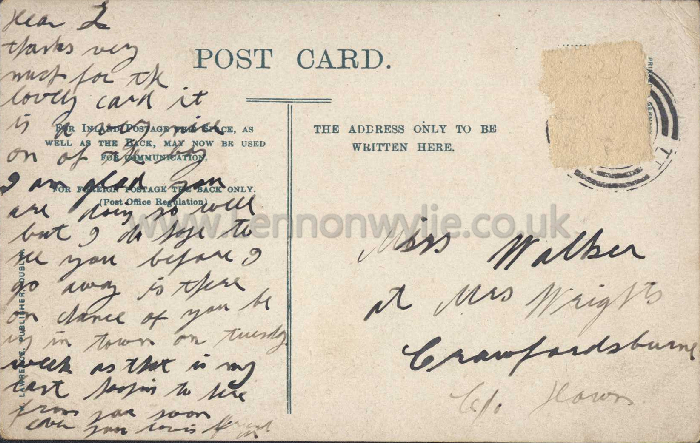 POST CARD.
FOR INLAND POSTAGE THIS SPACE, AS
WELL AS THE BACK, MAY NOW BE USED
FOR COMMUNICATION.
FOR FOREIGN POSTAGE THE BACK ONLY.
(Post Office Regulation)
THE ADDRESS ONLY TO BE
WRITTEN HERE.
LAWRENCE, PUBLISHER, DUBLIN
Dear L
thanks very
much for the
lovely card it
is a very nice
on of the boy
I am glad you
are doing so well
but I do hope to
see you before I
go away is there
on chance of you be
in town on tuesday
week as that is my
last hopin to here
from you soon
ever you
Miss Walker
at Mrs Wrights
Crawfordsburne
Co. Down
www.lennonwylie.co.uk